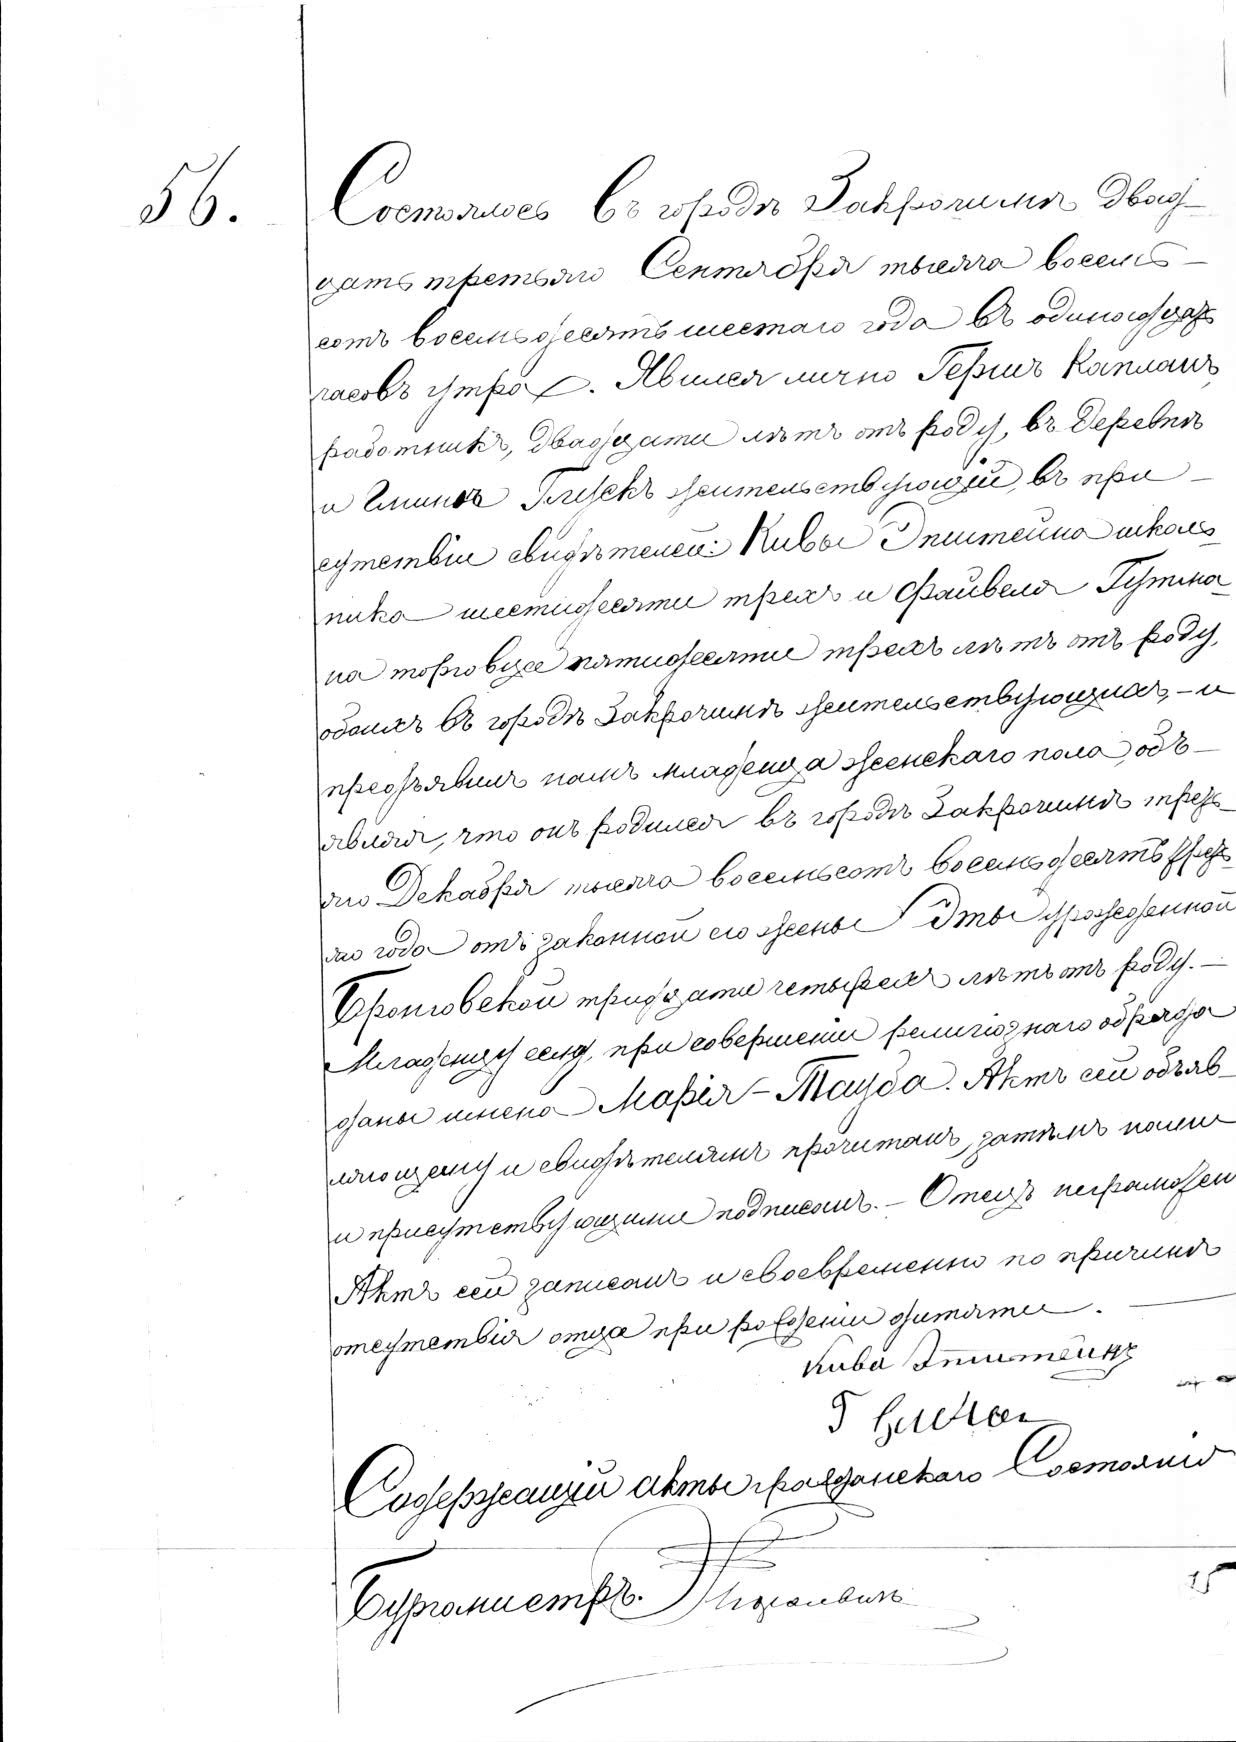 56.
Состоялось въ городѣ Закрочимѣ двад-
цать третьяго Сентября тысяча восемь-
сотъ восемьдесятъ шестаго года въ одинадцать
часовъ утра. Явился лично Гершъ Капланъ,
работникъ, двадцати лѣтъ отъ роду, въ деревнѣ
и гминѣ жительствующій, въ при-
сутствіи свидѣтелей: Кивы Эпштейна школь-
ника шестидесяти трехъ и Файвеля Гутма-
на торговца пятидесяти трехъ лѣтъ отъ роду,
обоихъ въ городѣ Закрочимѣ жительствующихъ, - и
предъявилъ намъ младенца женскаго пола, объ-
являя, что онъ родился въ городѣ Закрочимѣ треть-
яго Декабря тысяча восемьсотъ восемьдесятъ
го года отъ законной его жены Эты урожденной
Бронговской тридцати четырехъ лѣтъ отъ роду. -
Младенцу сему, при совершеніи религіознаго обряда
даны имена Марія - Тауба. Актъ сей объяв-
ляющему и свидѣтелямъ прочитанъ, затѣмъ нами
и присутствующими подписанъ. - Отецъ неграмотен
Актъ сей записанъ и своевременно по причинѣ
отсутствія отца при рожденіи дитяти.
Кива Эпштейнъ
Содержащій акты гражданскаго Состоянія
Бургомистръ.